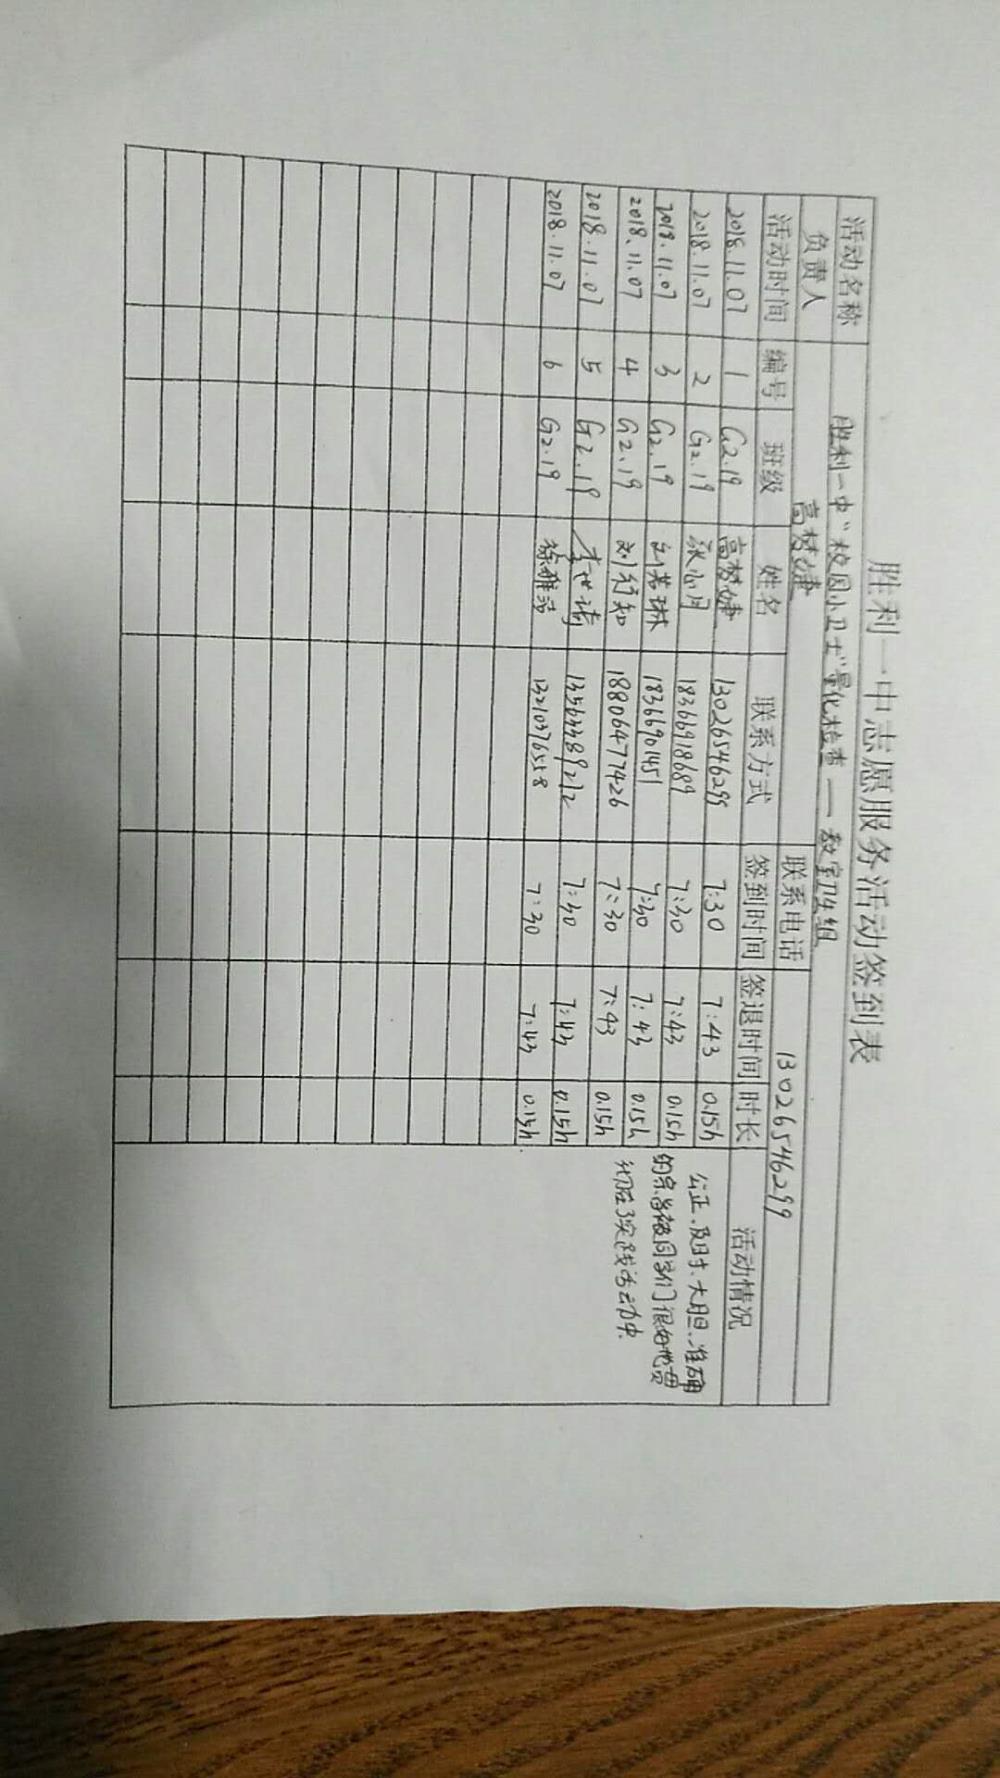 胜利一中志愿服务活动签到表
活动名称 胜利一中“校园小卫士”量化检查——教室卫生组
负责人 高梦婕 联系电话 13026546299
活动时间 编号 班级 姓名 联系方式 签到时间 签退时间 时长 活动情况
2018.11.07 1 G2.19 高梦婕 13026546299 7:30 7:43 0.15h
2018.11.07 2 G2.19 张 月 18366918689 7:30 7:43 0.15h
2018.11.07 3 G2.19 刘若琳 18366901451 7:30 7:43 0.15h
2018.11.07 4 G2.19 刘行知 18806477426 7:30 7:43 0.15h
2018.11.07 5 G2.19 李世 7:30 7:43 0.15h
2018.11.07 6 G2.19 徐雅 13210376558 7:30 7:43 0.15h
公正、及时、大胆、准确
的宗旨被同学们很好地贯
彻在了实践活动中.